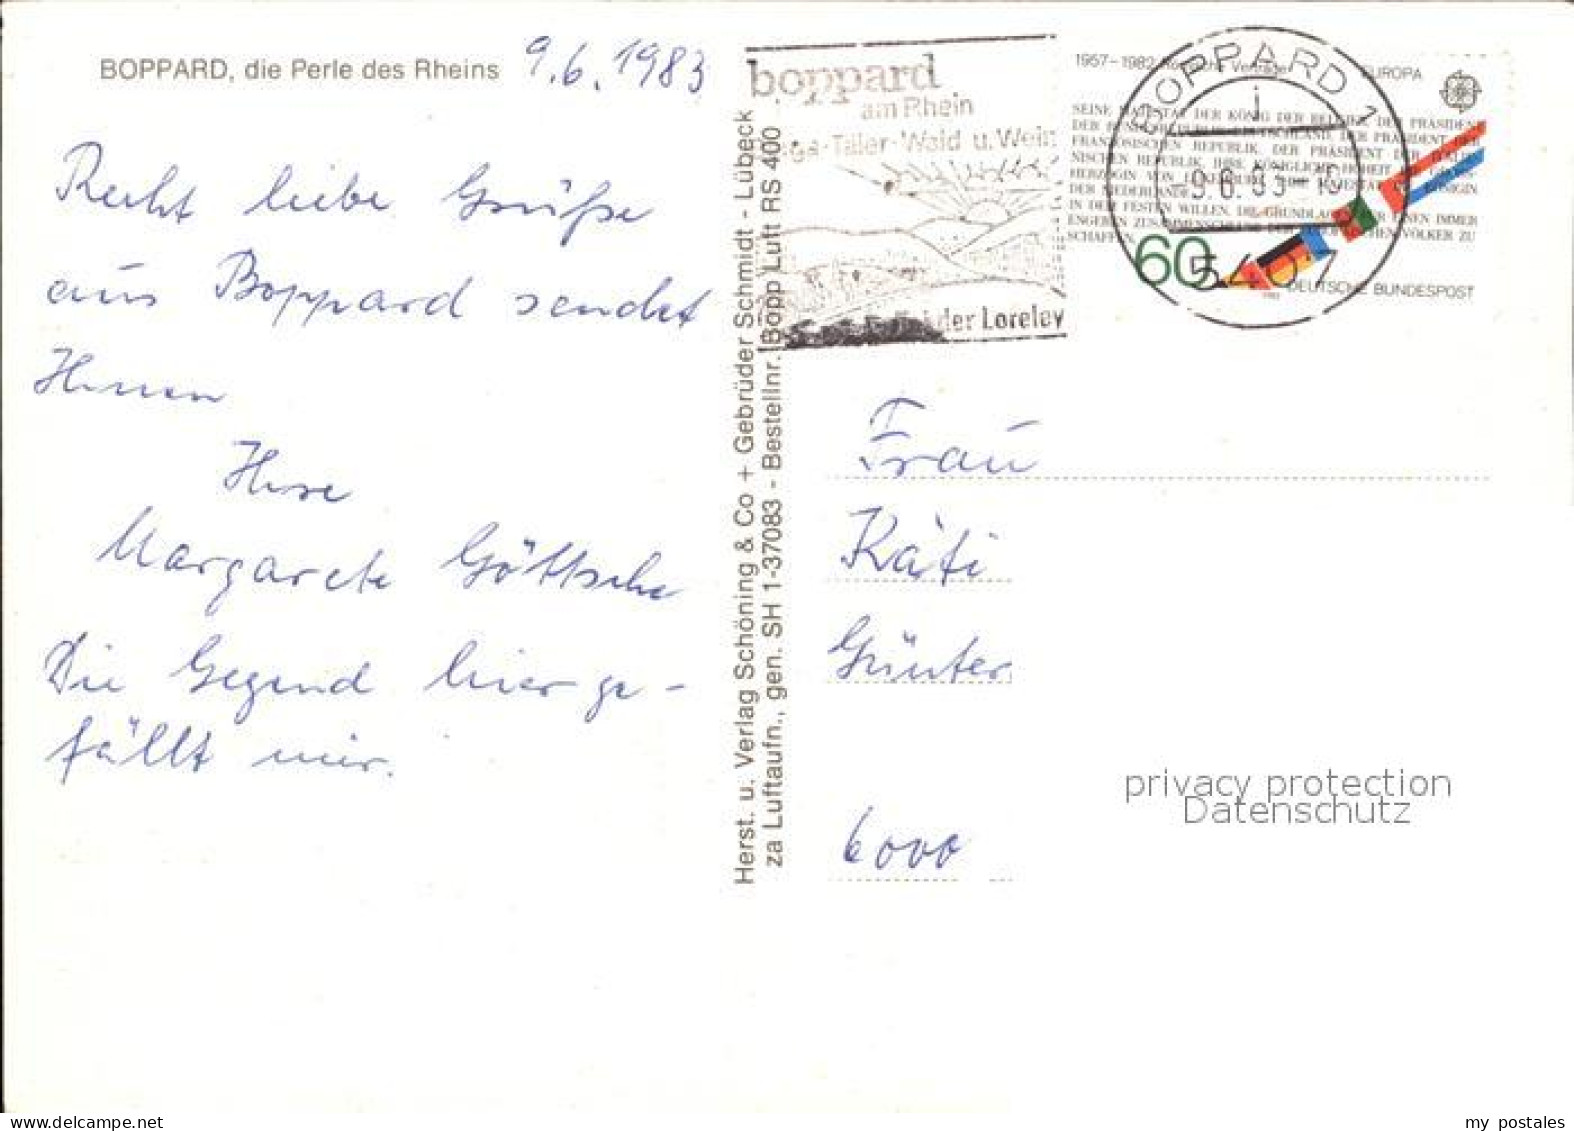 BOPPARD, die Perle des Rheins 9.6.1983
Recht liebe Grüße
aus Boppard sendet
Ihnen
Ihre
Margarete Göttsche
Die Gegend hier ge-
fällt mir.
Herst. u. Verlag Schöning & Co + Gebrüder Schmidt - Lübeck
za Luftaufn., gen. SH 1-37083 - Bestellnr. Bopp Luft RS 400
boppard
am Rhein
Täler-Wald u. Wein
der Loreley
1957-1982 Römische Verträge EUROPA
SEINE MAJESTÄT DER KÖNIG DER BELGIER, DER PRÄSIDENT
DER BUNDESREPUBLIK DEUTSCHLAND, DER PRÄSIDENT DER
FRANZÖSISCHEN REPUBLIK, DER PRÄSIDENT DER ITALIE-
NISCHEN REPUBLIK, IHRE KÖNIGLICHE HOHEIT DIE GROSS-
HERZOGIN VON LUXEMBURG, IHRE MAJESTÄT DIE KÖNIGIN
DER NIEDERLANDE
IN DEM FESTEN WILLEN, DIE GRUNDLAGEN FÜR EINEN IMMER
ENGEREN ZUSAMMENSCHLUSS DER EUROPÄISCHEN VÖLKER ZU
SCHAFFEN
60
DEUTSCHE BUNDESPOST
BOPPARD 1
9.6.83
5407
Frau
Käti
Günter
6000
privacy protection
Datenschutz
my postales